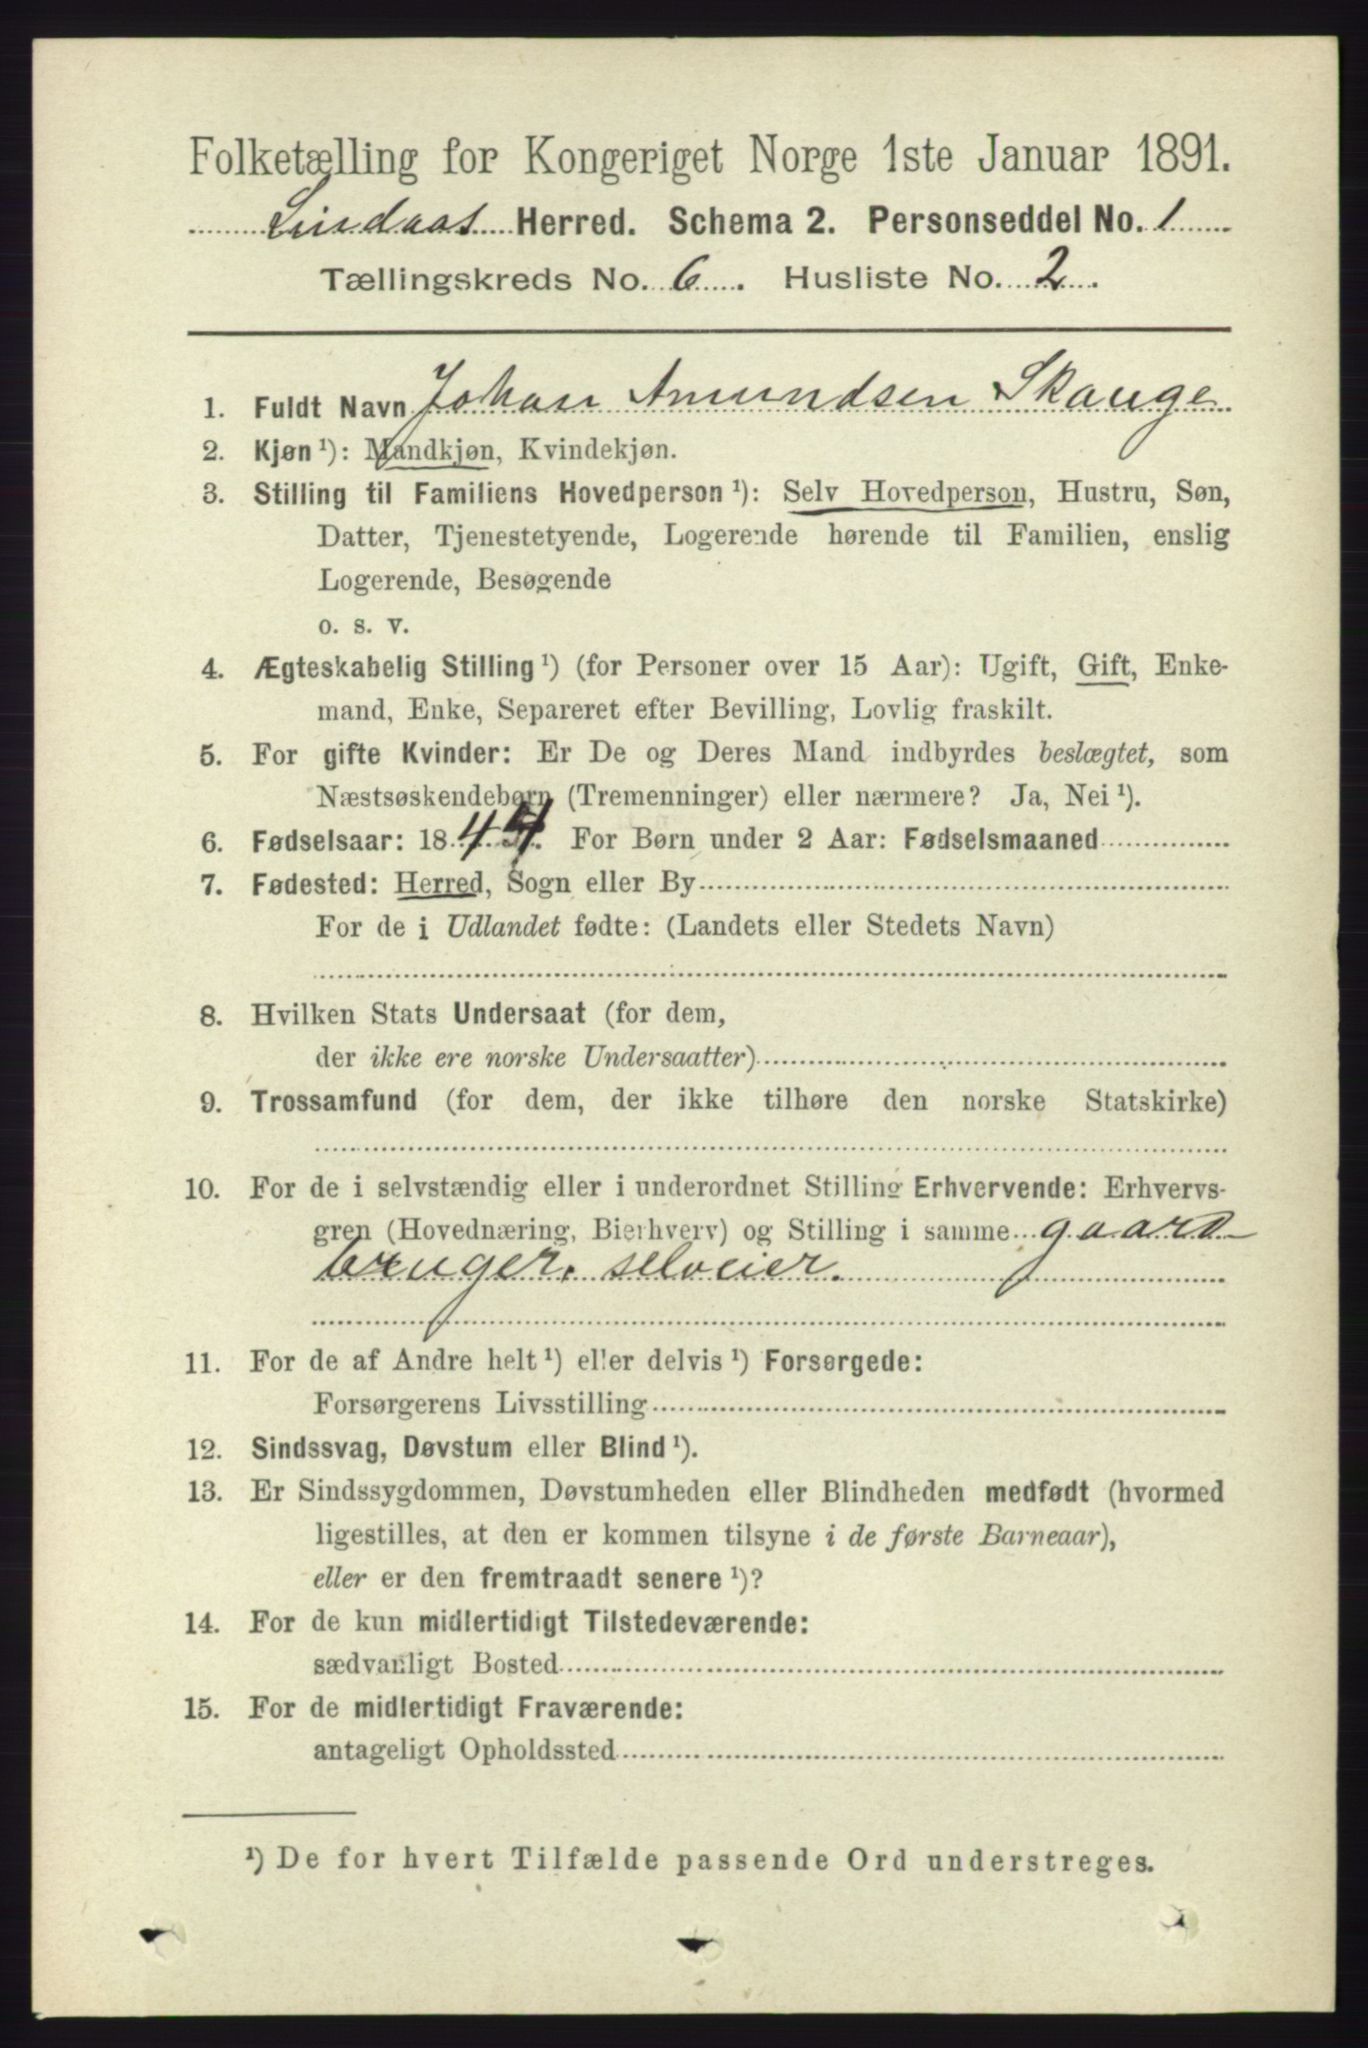 Folketælling for Kongeriget Norge 1ste Januar 1891.
Lindaas Herred. Schema 2. Personseddel No. 1
Tællingskreds No. 6. Husliste No. 2.
1. Fuldt Navn Johan Amundsen Skauge
2. Kjøn¹): Mandkjøn, Kvindekjøn.
3. Stilling til Familiens Hovedperson¹): Selv Hovedperson, Hustru, Søn,
Datter, Tjenestetyende, Logerende hørende til Familien, enslig
Logerende, Besøgende
o. s. v.
4. Ægteskabelig Stilling¹) (for Personer over 15 Aar): Ugift, Gift, Enke-
mand, Enke, Separeret efter Bevilling, Lovlig fraskilt.
5. For gifte Kvinder: Er De og Deres Mand indbyrdes beslægtet, som
Næstsøskendebørn (Tremenninger) eller nærmere? Ja, Nei¹).
6. Fødselsaar: 1844. For Børn under 2 Aar: Fødselsmaaned
7. Fødested: Herred, Sogn eller By
For de i Udlandet fødte: (Landets eller Stedets Navn)
8. Hvilken Stats Undersaat (for dem,
der ikke ere norske Undersaatter)
9. Trossamfund (for dem, der ikke tilhøre den norske Statskirke)
10. For de i selvstændig eller i underordnet Stilling Erhvervende: Erhvervs-
gren (Hovednæring, Bierhverv) og Stilling i samme gaard-
bruger. selveier.
11. For de af Andre helt¹) eller delvis¹) Forsørgede:
Forsørgerens Livsstilling
12. Sindssvag, Døvstum eller Blind¹).
13. Er Sindssygdommen, Døvstumheden eller Blindheden medfødt (hvormed
ligestilles, at den er kommen tilsyne i de første Barneaar),
eller er den fremtraadt senere¹)?
14. For de kun midlertidigt Tilstedeværende:
sædvanligt Bosted
15. For de midlertidigt Fraværende:
antageligt Opholdssted
¹) De for hvert Tilfælde passende Ord understreges.